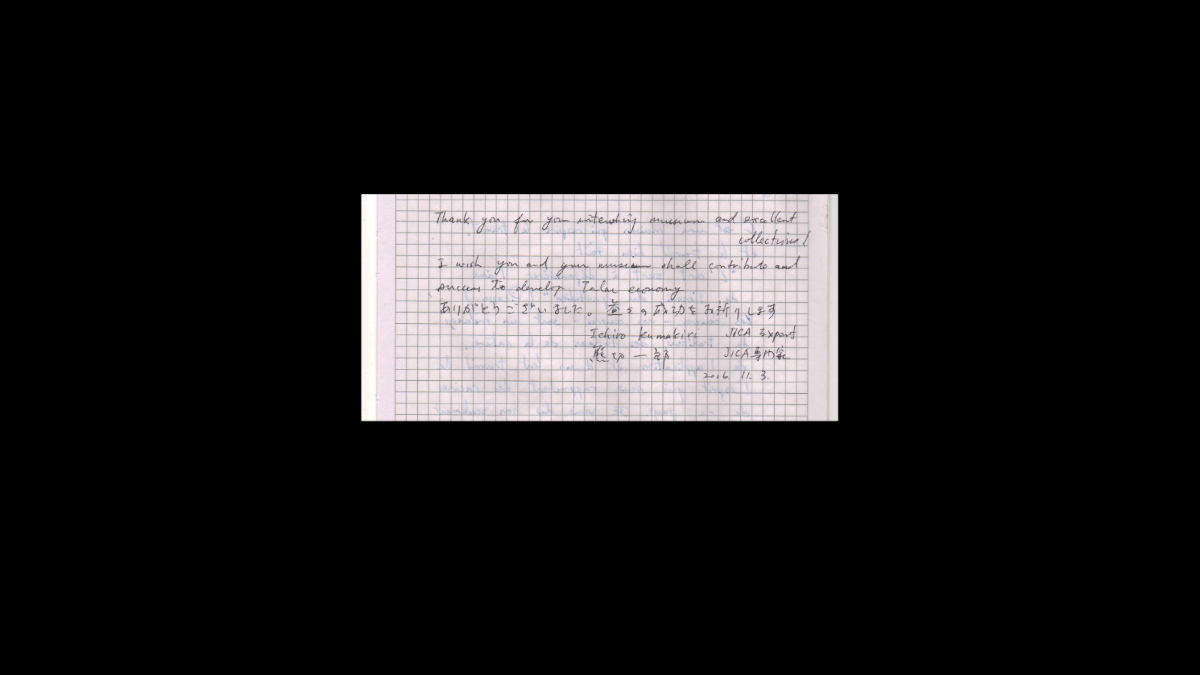 Thank you for your interesting museum and excellent
collections!
I wish you and your museum shall contribute and
success to develop economy.
ありがとうございました。益々の成功をお祈りします
Ichiro Kumakiri JICA Expert
熊切一郎 JICA専門家
2016. 11. 3.